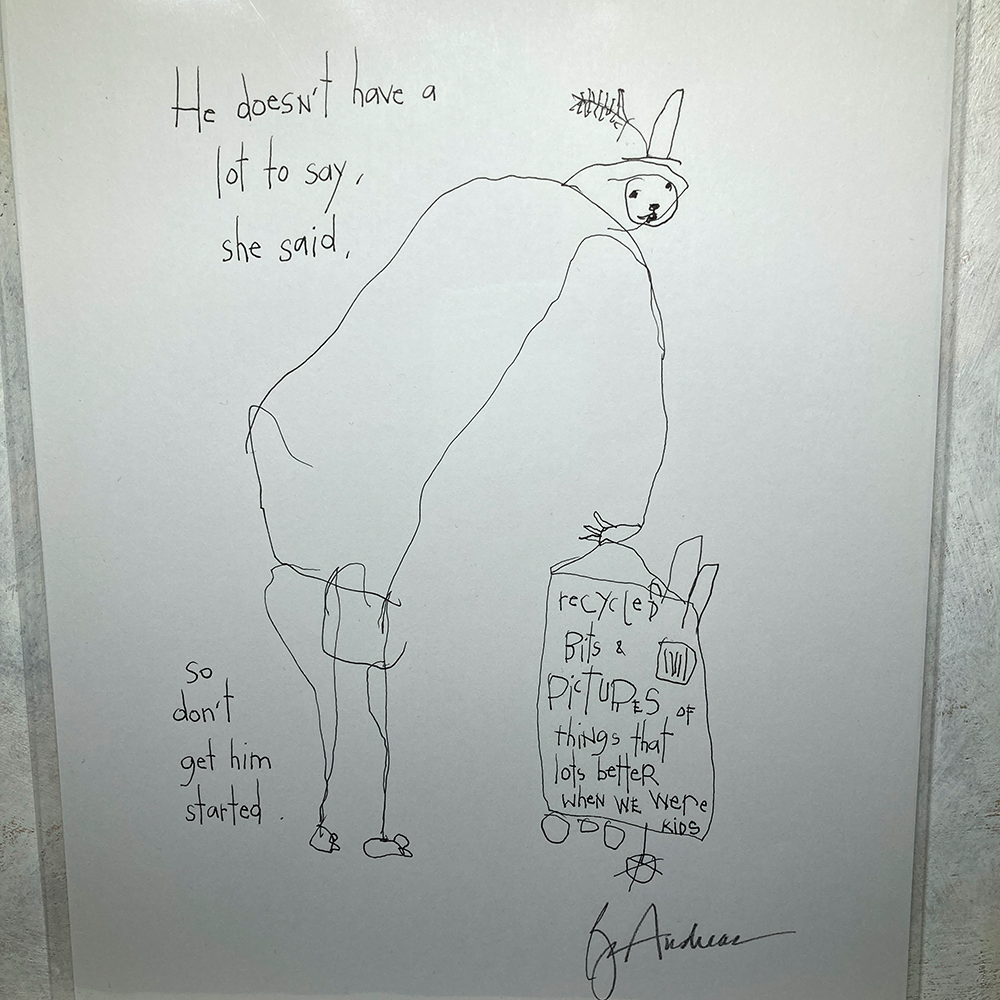 He doesn't have a
lot to say,
she said,
so
don't
get him
started.
recycled
Bits &
PICTURES OF
things that
lots better
when WE were
KIDS
Andreas